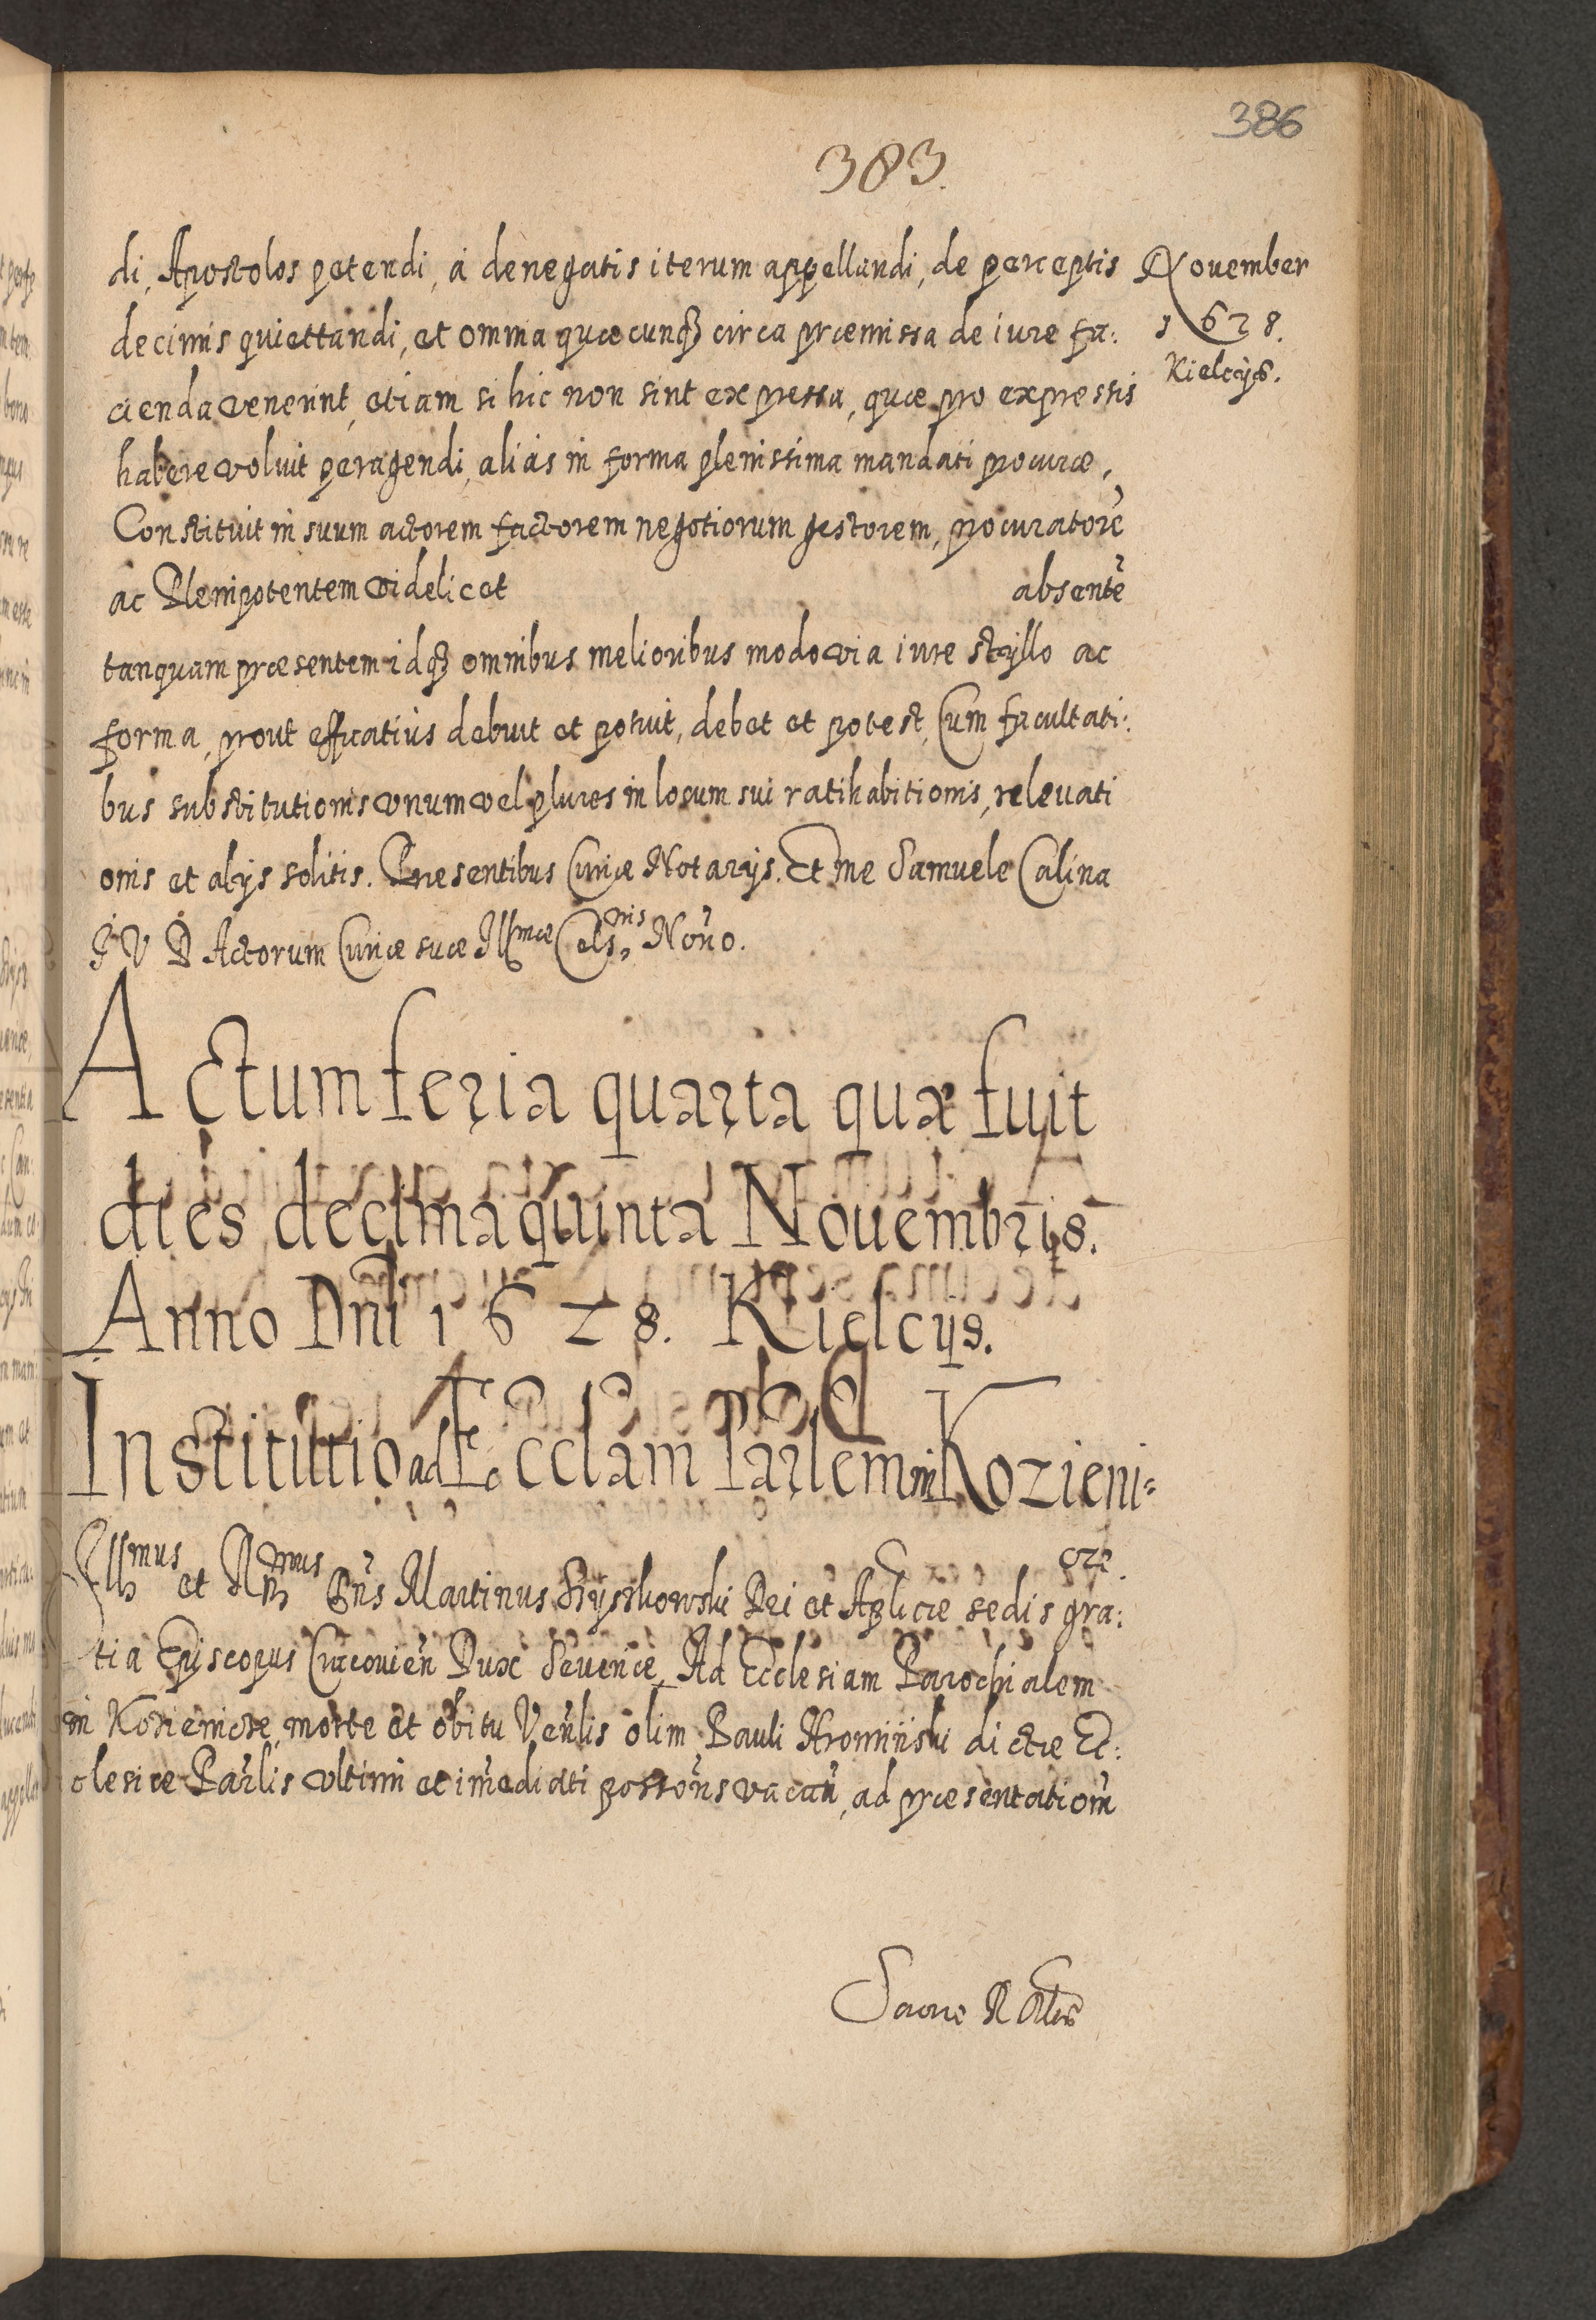 386
383.
di, Apostolos petendi, à denegatis iterum appellandi, de perceptis
November
decimis quiettandi, et omnia quæcunqȝ circa præmissa de iure fa:
1628.
cienda venerint, etiam si hic non sint expressa, quæ pro expressis
Kielcijs.
habere voluit peragendi, aliàs in forma plenissima mandati procuræ,
Constituit in suum actorem factorem negotiorum gestorem, procuratorē
ac Plenipotentem videlicet absentē
tanquam præsentem idqȝ omnibus melioribus modo via iure stÿllo ac
forma, prout efficatiùs debuit et potuit, debet et potest, Cum facultati:
bus substitutionis vnum vel plures in locum sui ratihabitionis, releuati
onis et alijs solitis. Præsentibus Curiæ Notarijs. Et me Samuele Calina
I V D Actorum Curiæ suæ Illmæ Celsnis Noño.
Actum feria quarta quæ fuit
dies decima quinta Nouembris.
Anno Dnī 1628. Kielcijs.
Institutio ad Ecclam Parlem in Kozieni=
cze.
Illmus et Rmus Dn̄s Martinus Szyszkowski Dei et Aplicæ sedis gra:
tia Episcopus Cracouien̄ Dux Seueriæ, Ad Ecclesiam Parochialem
in Kozienicze, morte et obitu Ven̄lis olim Pauli dictæ Ec:
clesiæ Par̄lis vltimi et im̄ediati posson̄s vacan̄, ad præsentationm̄
Sacræ R